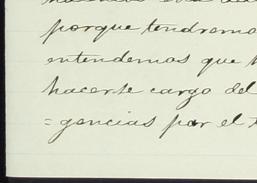 porque tendremo
entendemos que
hacerte cargo del
=gencias por el